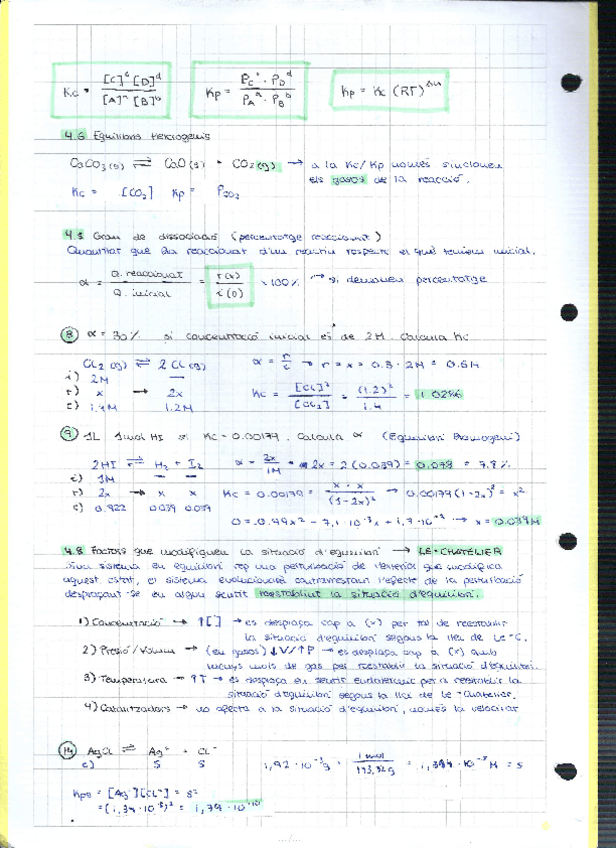 Kc = [C]^c [D]^d / [A]^a [B]^b   Kp = P_C^c · P_D^d / P_A^a · P_B^b   Kp = Kc (RT)^Δn
4.6 Equilibris heterogenis
CaCO3(s) ⇌ CaO(s) + CO2(g) → a la Kc/Kp només s'inclouen
els gasos de la reacció.
Kc = [CO2]   Kp = P_CO2
4.5 Grau de dissociació (percentatge reaccionat)
Quantitat que ha reaccionat d'un reactiu respecte el que teníem inicial.
α = Q. reaccionat / Q. inicial = r(x) / i(0) ×100% → si demanen percentatge
8 α = 30% si concentració inicial és de 2M. Calcula Kc
Cl2(g) ⇌ 2 Cl(g)   α = r/i → r = x = 0.3 · 2M = 0.6M
i) 2M —
r) x → 2x   Kc = [Cl]^2 / [Cl2] = (1.2)^2 / 1.4 = 1.0286
c) 1.4M 1.2M
9 1L 1mol HI si Kc = 0.00179. Calcula α (Equilibri Homogeni)
2HI ⇌ H2 + I2   α = 2x / 1M = 2x = 2(0.039) = 0.078 = 7.8%
i) 1M — —
r) 2x → x x   Kc = 0.00179 = x · x / (1-2x)^2 → 0.00179(1-2x)^2 = x^2
c) 0.922 0.039 0.039
→ x = 0.039M
4.8 Factors que modifiquen la situació d'equilibri → LE-CHATELIER
Si un sistema en equilibri rep una perturbació de l'exterior que modifica
aquest estat, el sistema evolucionarà contrarestant l'efecte de la perturbació
desplaçant-se en algun sentit reestablint la situació d'equilibri.
1) Concentració → ↑[ ] → es desplaça cap a (x) per tal de reestablir
la situació d'equilibri segons la llei de Le-C.
2) Pressió/Volum → (en gasos) ↓V/↑P → es desplaça cap a (x) amb
menys mols de gas per reestablir la situació d'equilibri.
3) Temperatura → ↑T → es desplaça en sentit endotèrmic per a reestablir la
situació d'equilibri segons la llei de Le-Chatelier.
4) Catalitzadors → no afecta a la situació d'equilibri, només la velocitat
14 AgCl ⇌ Ag+ + Cl-
c) S S   1,92 · 10^-3 g · 1 mol / 143,32g = 1,34 · 10^-5 M = S
Kps = [Ag+][Cl-] = S^2
= (1,34 · 10^-5)^2 = 1,79 · 10^-10